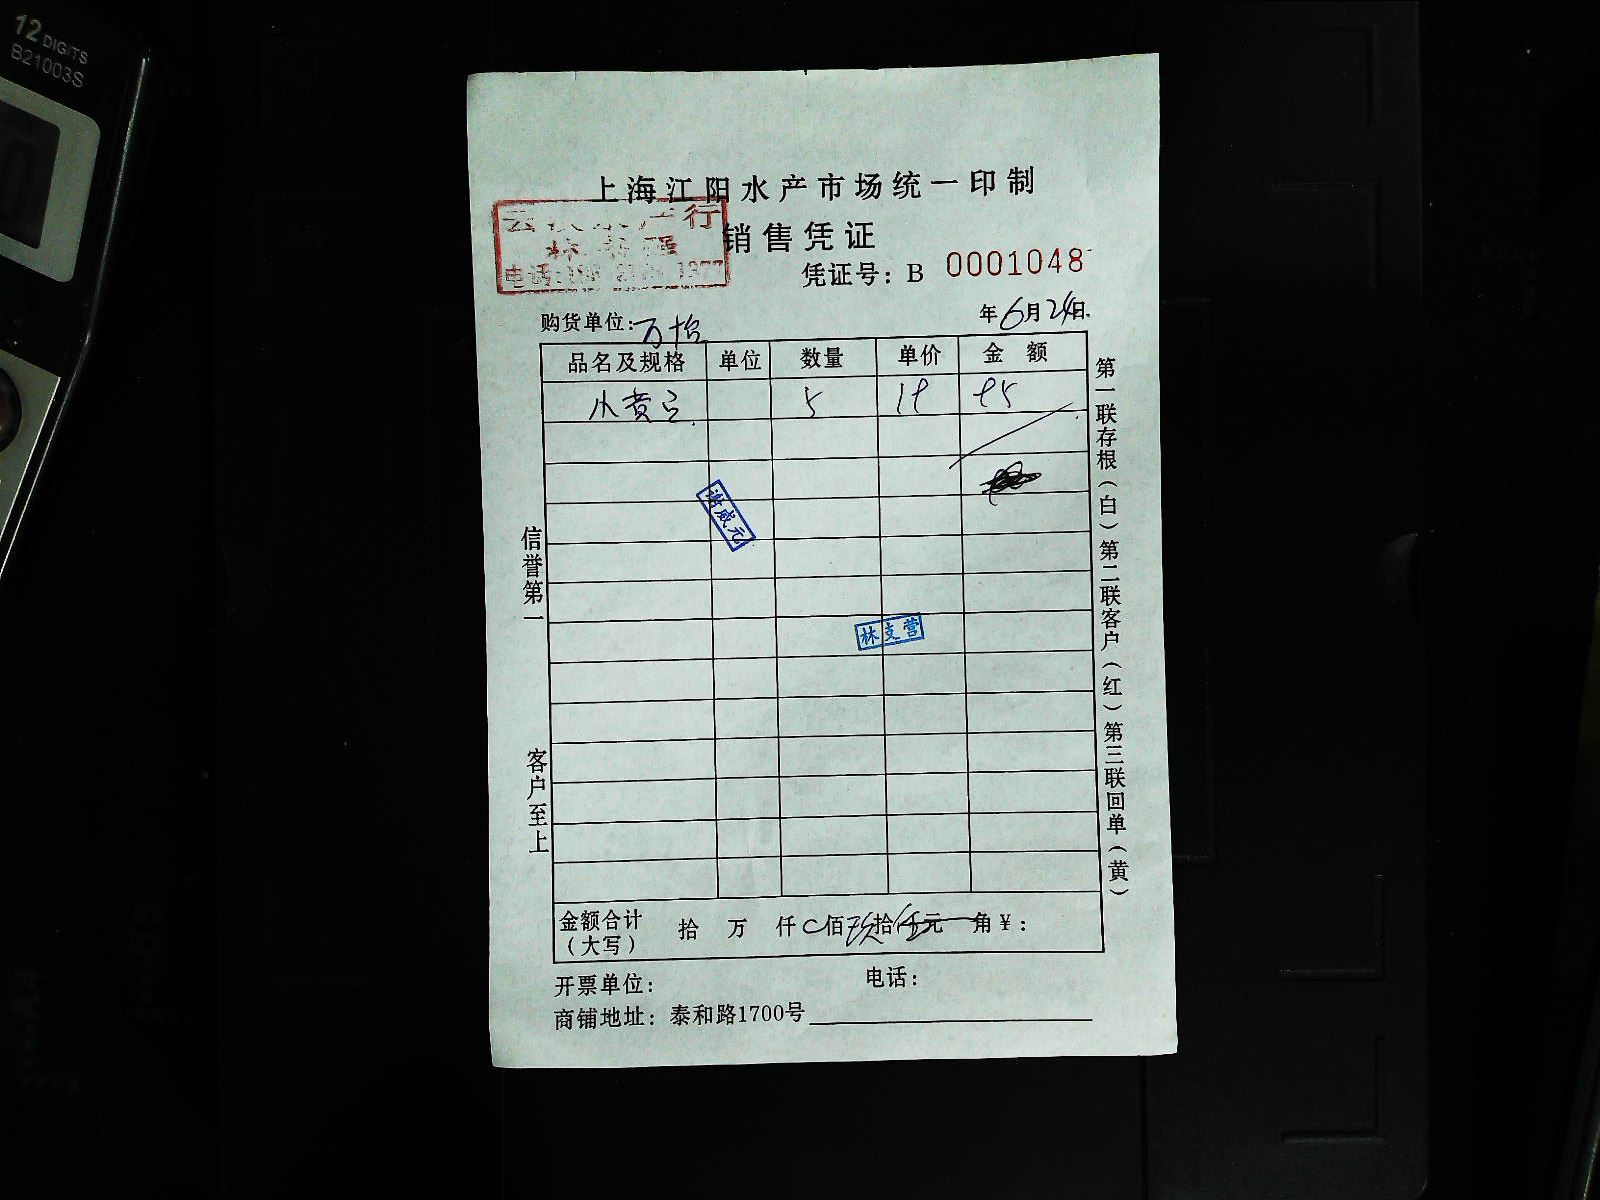 12 DIGITS
B21003S
上海江阳水产市场统一印制
销售凭证
水产行
电话: 1377
凭证号: B 0001048
购货单位: 万怡
年6月24日
品名及规格 单位 数量 单价 金额
小黄 5 19 95
谢威元
林支营
信誉第一
客户至上
第一联存根(白)第二联客户(红)第三联回单(黄)
金额合计(大写) 拾 万 仟 佰玖拾伍元 角 ¥:
开票单位: 电话:
商铺地址: 泰和路1700号